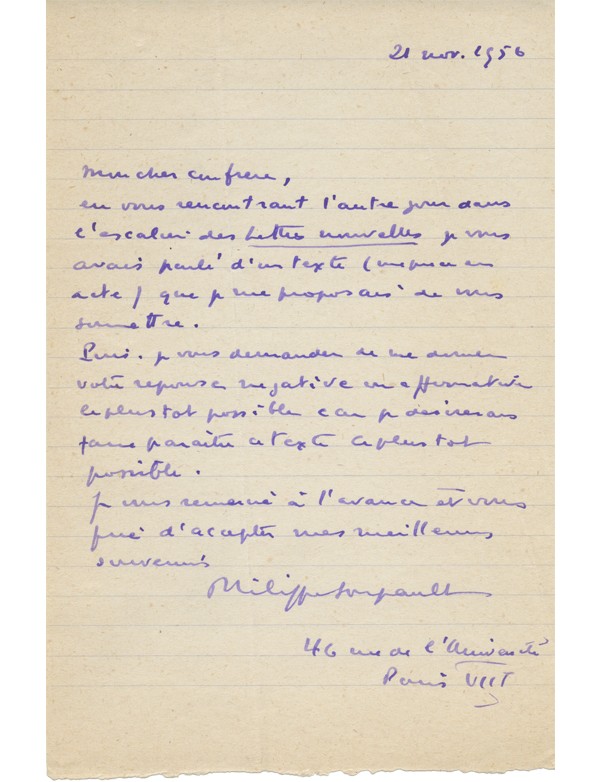 21 nov. 1956
Mon cher confrère,
en vous rencontrant l'autre jour dans
l'escalier des Lettres nouvelles je vous
avais parlé d'un texte ( un en
acte ) que je me proposais de vous
soumettre.
Puis-je vous demander de me donner
votre réponse négative ou affirmative
le plus tot possible car je désirerais
faire paraître ce texte le plus tot
possible.
Je vous remercie à l'avance et vous
prie d'accepter mes meilleurs
souvenirs
Philippe Soupault
46 rue de l'Université
Paris VII